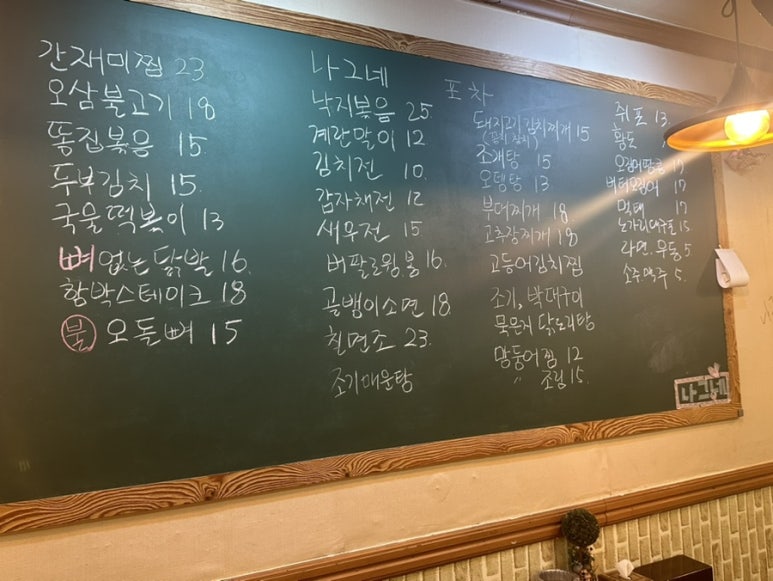 간재미찜 23
오삼불고기 18
똥집볶음 15
두부김치 15.
국물떡볶이 13
뼈없는닭발 16.
함박스테이크 18
불 오돌뼈 15
나그네
낙지볶음 25.
계란말이 12
김치전 10.
감자채전 12
새우전 15
버팔로윙봉 16.
골뱅이소면 18.
칠면조 23.
조기매운탕
포차
돼지고기김치찌개 15
조개탕 15
오뎅탕 13
부대찌개 18.
고추장찌개 18
고등어김치찜
조기, 박대구이
묵은지 닭도리탕
망둥어찜 12
" 조림 15.
쥐포 13
황도
오징어땅콩 17
버터오징어 17
먹태 17
노가리대구포 15
라면. 우동 5
소주.맥주 5.
나그네